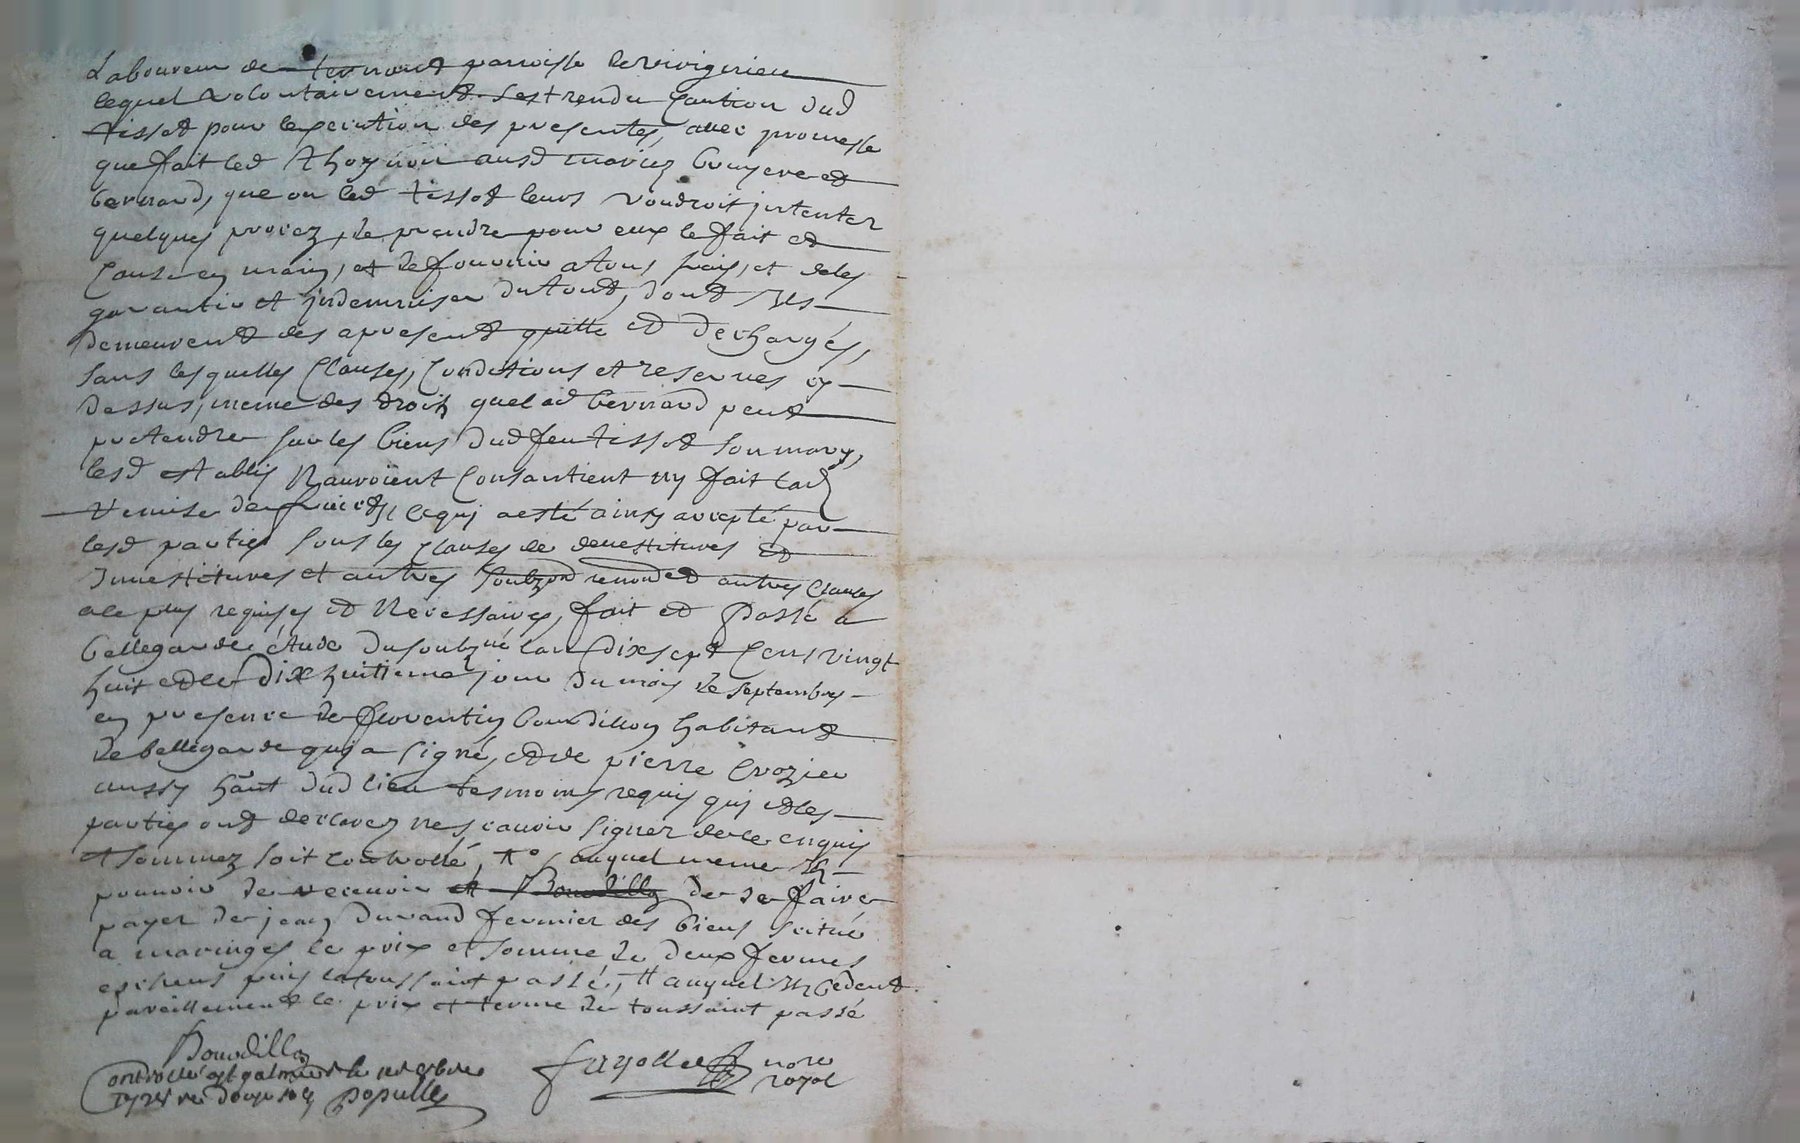 Laboureur de ternand parroisse de virigneu
lequel volontairement s'est rendu Caution dud
tissot pour lexecution des presentes, avec promesse
que fait led Thoynon ausd mariez bruyere et
bernard, que ou led tissot leurs voudroit jntenter
quelques procez, de prendre pour eux le fait et
Cause en main, et de fournir a tous frais, et de les
garantir et jndemniser du tout, dont Ils
demeurent des apresent quitte et dechargés,
sans lesquelles Clauses, Conditions et reserves cy
dessus, meme des droits quelad bernard peut
pretendre sur les biens dud feu tissot son mary,
lesd establis N'auroient Consantient ny fait lad
remise de fruicts, ce quj a esté ainsy accepté par
lesd parties sous les Clauses de devestitures et
Investitures et autres soubz renond et autres Clauses
a ce plus requises et Necessaires, fait et passé a
bellegarde étude du soubzné lan dix sept Cens vingt
huit et le dix huitieme jour du mois de septembre
en presence de florentin bourdillon habitant
de bellegarde quj a signé, et de pierre Crozier
aussy hãnt dud lieu tesmoins requis quj et les
parties ont declarez ne scavoir signer de ce enquis
et sommez soit controllé, auquel meme Ils
pouvoir de recevoir et Bourdillon de se faire
payer de jean durand fermier des biens scitué
a maringes le prix et somme de deux fermes
escheus puis la toussaint passé, auquel Ils Cedent
pareillement le prix et terme de toussaint passé
Bourdillon
fayolle nore
royal
Controllé a St galmier le
1728 re douze sols populle